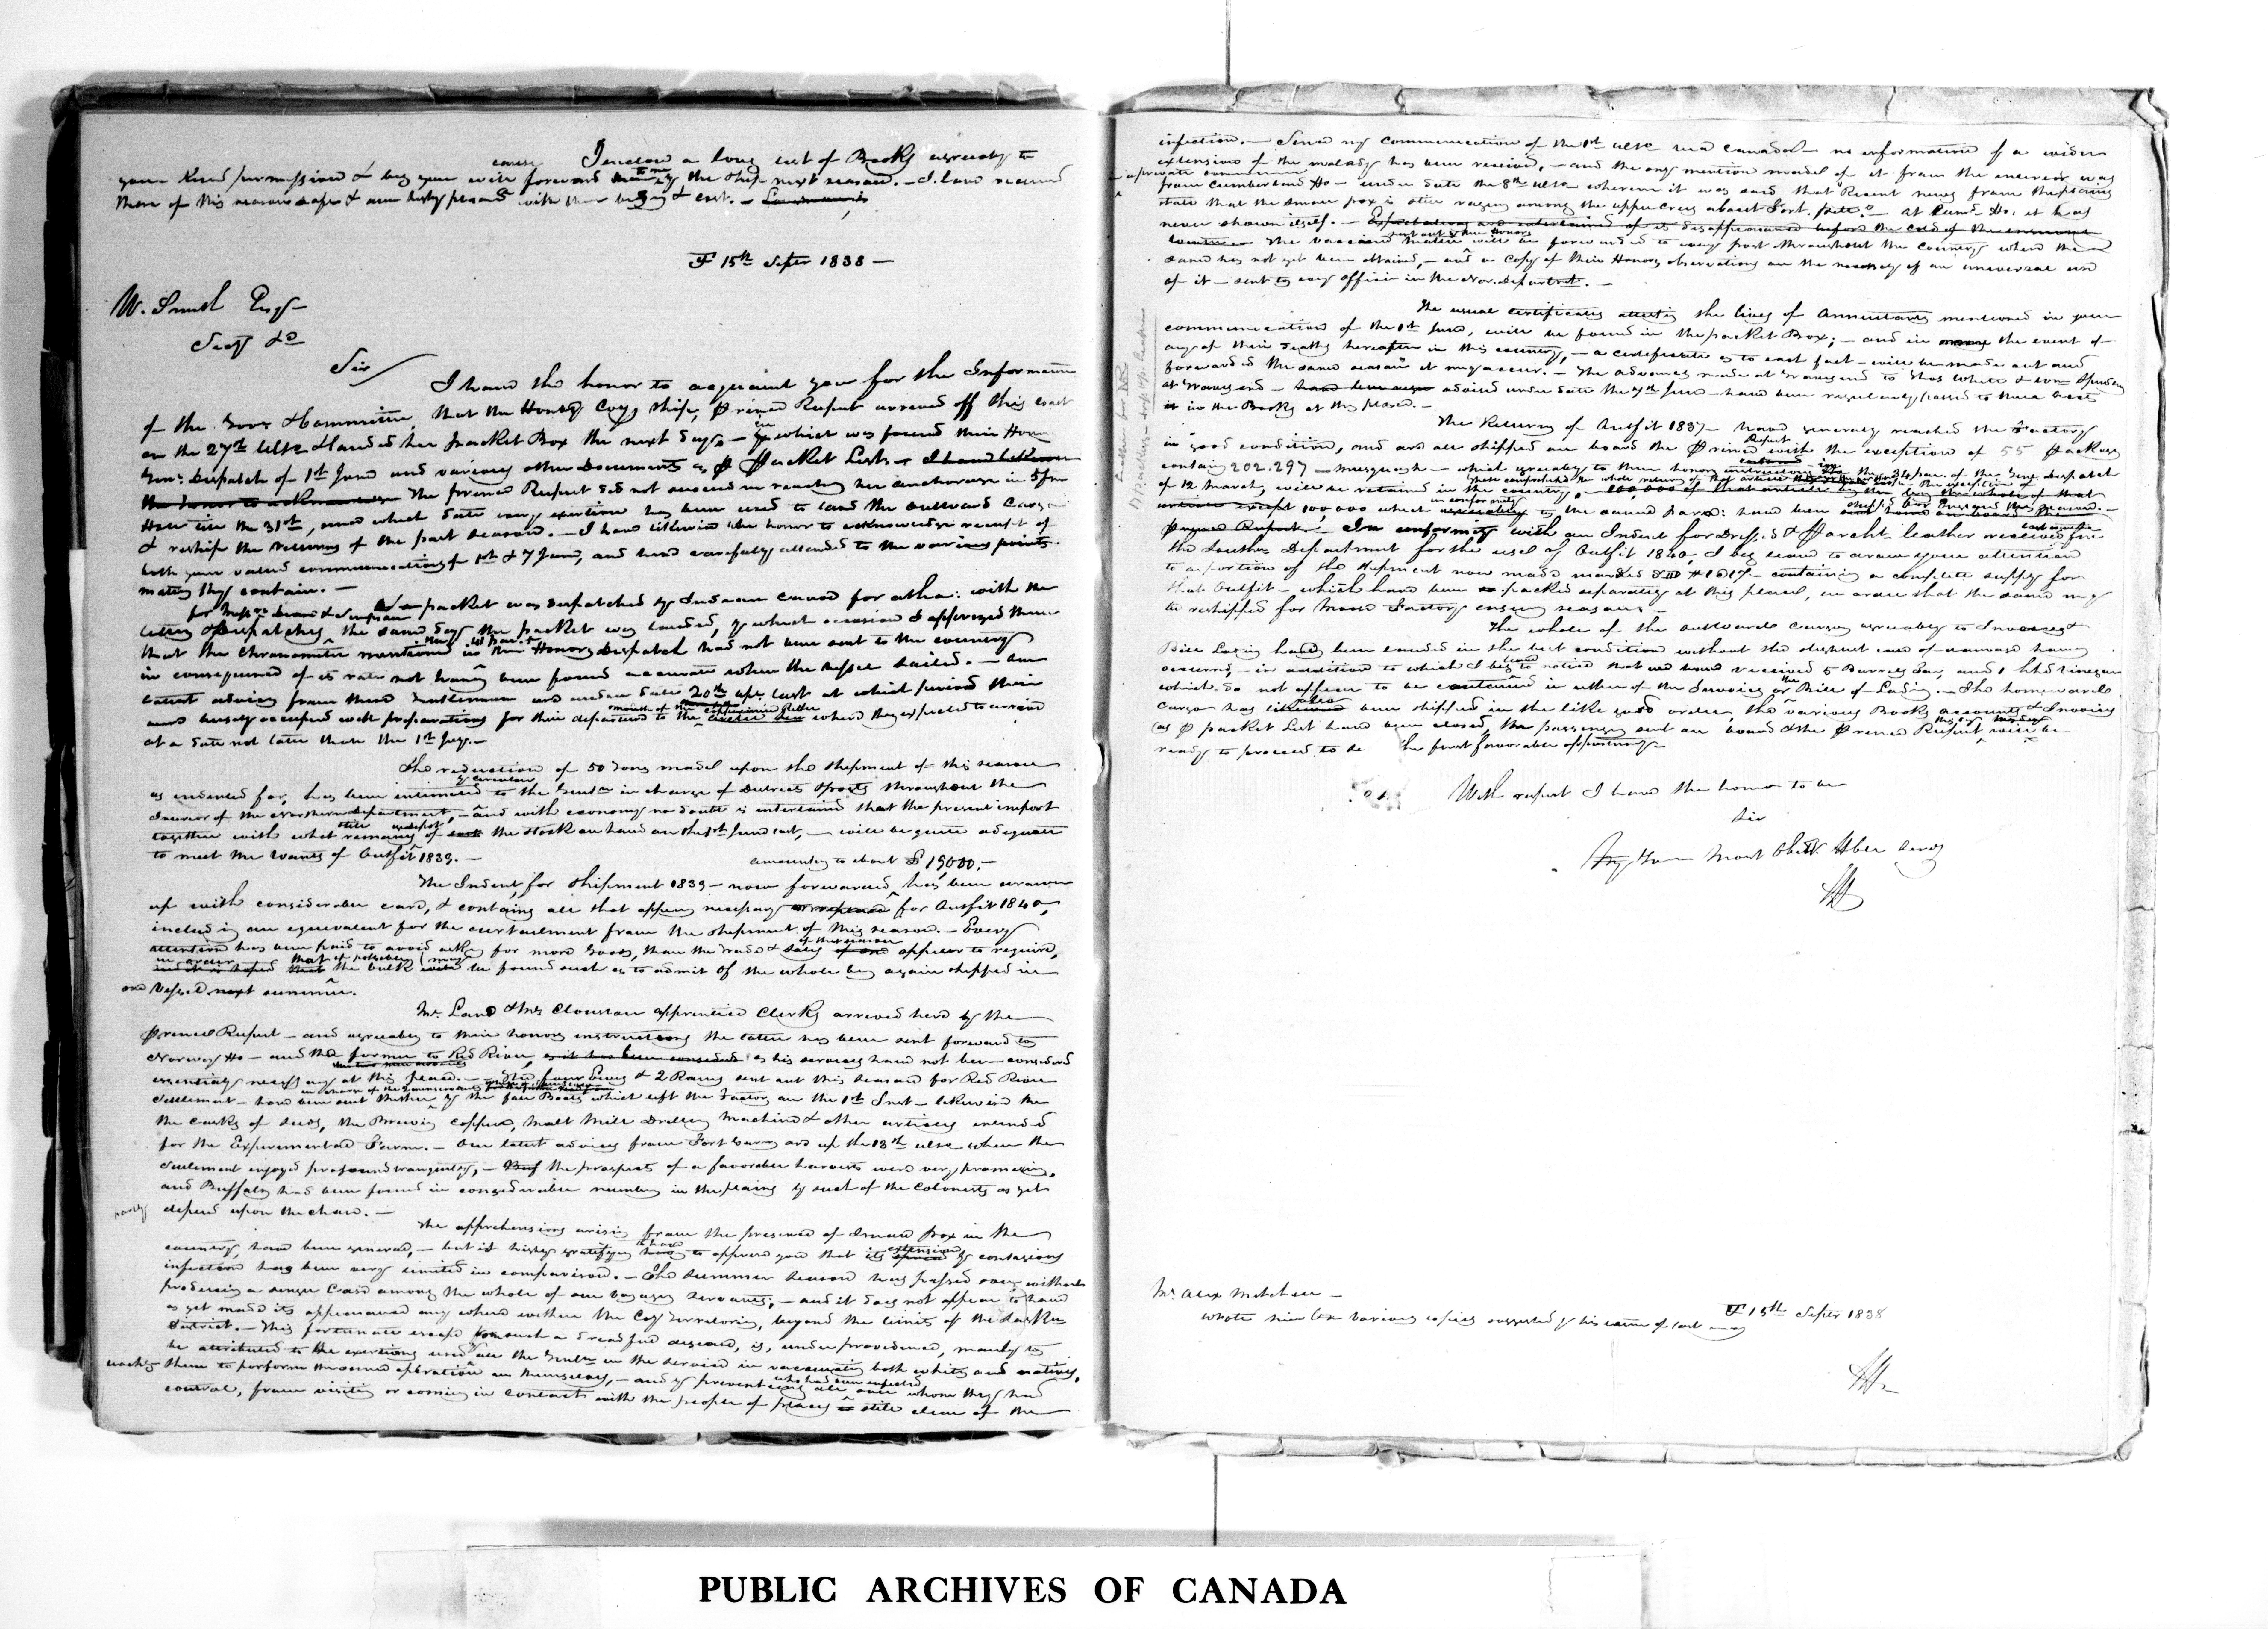 I enclose a long list of Books agreeably to
your kind permission & beg you will cause forward to me by the Ship next season. - I have received
those of this season safe & am highly pleased with their & cost. -
YF 15th Septer 1838 -
W. Smith Esqr
Secy &c
Sir
I have the honor to acquaint you for the Information
of the Govr & Committee, that the Honble Coys Ship, Prince Rupert arrived off this coast
on the 27th Ulto & landed her Packet Box the next day - in which was found their Honors
Genl Dispatch of 1st June and various other Documents as P Packet List. - I have likewise
the honor to acknowledge The Prince Rupert did not succeed in reaching her anchorage in 5 fm
Hole till the 31st, since which date every exertion has been used to land the outward Cargo
& reship the returns of the past season. - I have likewise the honor to acknowledge receipt of
both your valued communications of 1st & 7 June, and have carefully attended to the various points
matters they contain. -
for Messrs Dease & Simpson a packet was dispatched by Indian Canoe for Atha: with the
letters & Dispatches, the same day the packet was landed, by which occasion I apprized them
that the Chronometer mentioned in their Honors Dispatch had not been sent to the country
in consequence of its rate not having been found accurate when the vessel sailed. - Our
latest advices from these Gentlemen are under date 20th Apl last at which period they
were busily occupied with preparations for their departure to the mouth of the Coppermine River where they expected to arrive
at a date not later than the 1st July. -
The reduction of 50 Tons made upon the Shipment of this season
as indented for, has been intimated by circular to the Gentn in charge of Districts & posts throughout the
Interior of the Northern Department, - and with economy no doubt is entertained that the present import
together with what still remains of the stock on hand on the 1st June last, - will be quite adequate
to meet the wants of Outfit 1839. -
amounting to about £ 19000, -
The Indent for Shipment 1839 - now forwarded, has been drawn
up with considerable care, & contains all that appears necessary for Outfit 1840,
including an equivalent for the curtailment from the shipment of this season. - Every
attention has been paid to avoid asking for more Goods, than the Trade & sales of the season appear to require,
in order that if possible the bulk may be found such as to admit of the whole being again shipped in
one Vessel next summer.
Mr. Lane & Mr Clouston apprentice Clerks arrived here by the
Prince Rupert - and agreeably to their honors instructions the latter has been sent forward to
Norway Ho - and the former to Red River, as it has been considered as his services have not been considered
essentially necessary at this place. - The four Ewes & 2 Rams sent out this season for Red River
Settlement - have been sent thither by the fall Boats which left the Factory on the 1st Inst - likewise the
the casks of seeds, the Brewing copper, Malt Mill Drilling Machine & other articles intended
for the Experimental Farm. - Our latest advices from Fort Garry are up the 13th ulto when the
Settlement enjoyed profound tranquility, - the prospects of a favorable harvest were very promising,
and Buffalo had been found in considerable numbers in the plains by such of the Colonists as yet
partly
depend upon the chase. -
The apprehensions arising from the presence of Small Pox in the
country, have been general, - but it is highly gratifying to have to apprize you that its extension by contagious
infection has been very limited in comparison. - The summer season has passed over without
producing a single Case among the whole of our voyaging servants; - and it does not appear to have
as yet made its appearance any where within the Coys Territories, beyond the limits of the Saskn
District. - This fortunate escape from such a dreadful disease, is, under providence, mainly to
be attributed to the exertions used by all the Gentn in the service in vaccinating both whites and natives,
teaching them to perform the same operation on themselves, - and by preventing all who had been infected over whom they had
control, from visiting or coming in contact with the people of places still clear of the
infection. - Since my Communication of the 1st ulto via Canada - no information of a wider
extension of the malady has been received, - and the only mention made of it from the interior was
a private communication
from Cumberland Ho - under date the 8th ulto wherein it was said that "Recent news from the plains
state that the small pox is still raging among the upper Crees about Fort Pitt." - At Cumd Ho: it has
never shown itself. - Expectations are entertained of its disappearance before the cold of the ensuing
The vaccine matter sent out by their Honors will be forwarded to every post throughout the Country where the
same has not yet been obtained, - and a copy of their Honors observations on the necessity of an universal use
of it - sent to every officer in the Nor. Department. -
The usual certificates attesting the lives of Annuitants mentioned in your
communication of the 1st June, will be found in the packet Box; - and in the event of
any of their deaths hereafter in this country, - a certificate as to each fact - will be made out and
forwarded the same season it may occur. - The advances made at Gravesend to Thos White &
at Gravesend - advised under date the 7th June - have been regularly passed to their accts
in the Books at this place. -
The Returns of Outfit 1837 - have generally reached the Factory
in good condition, and are all shipped on board the Prince Rupert with the exception of 55 Packs
containg 202.297 - Musquash - which agreeably to their honors instructions in the 34 par. of the Genl Dispatch
of 12 March, will be retained in the country, -
100,000 which in conformity to the same Para: have been
Prince Rupert. - In conformity with an Indent for Dressd & Parcht leather received from
the Southn Department for the use of Outfit 1840, I beg leave to draw your attention
to a portion of the shipment now made marked - containing a complete supply for
that Outfit - which have been packed separately at this place, in order that the same may
be reshipped for Moose Factory ensuing season. -
The whole of the outward Cargo agreeably to Invoice &
Bill Lading have been landed in the best condition without the slightest case of damage having
occurred, - in addition to which I beg leave to notice that we have received 5 Barrels Tar, and 1 hhd Vinegar
which do not appear to be contained in either of the Invoices or the Bill of Lading. - The homeward
Cargo has also been shipped in the like good order, the various Books accounts & Invoices
as P packet List have been closed, the passengers sent on board & the Prince Rupert will be
ready to proceed to sea the first favorable opportunity. -
With respect I have the honor to be
Sir
Your Most Obedt Hble Servt
JH
Mr Alex Mitchell -
wrote him
YF 15th Septer 1838
JH
PUBLIC ARCHIVES OF CANADA